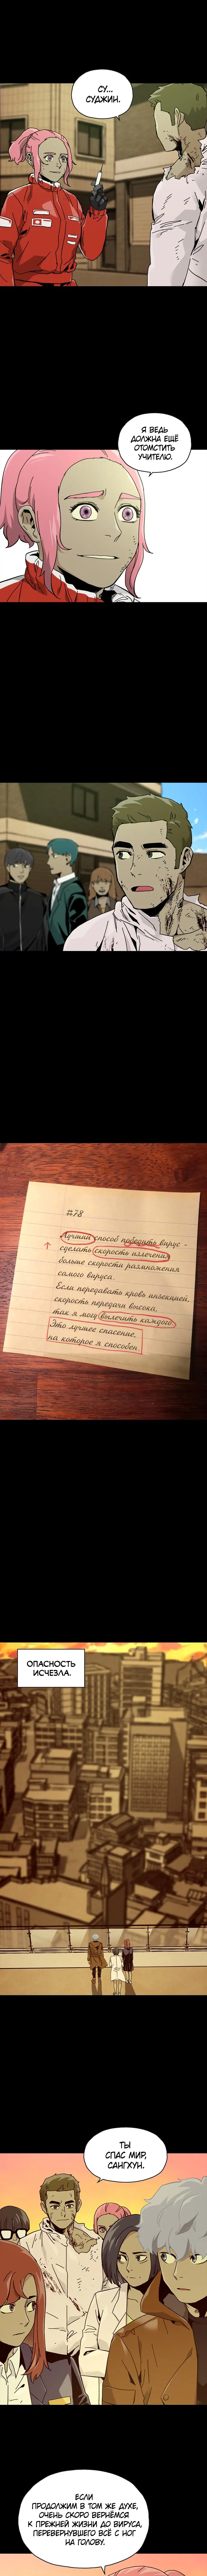 СУ...
СУДЖИН.
Я ВЕДЬ
ДОЛЖНА ЕЩЁ
ОТОМСТИТЬ
УЧИТЕЛЮ.
#78
Лучший способ победить вирус -
сделать скорость излечения
больше скорости размножения
самого вируса.
Если передавать кровь инъекцией,
скорость передачи высока,
так я могу вылечить каждого.
Это лучшее спасение,
на которое я способен.
ОПАСНОСТЬ
ИСЧЕЗЛА.
ТЫ
СПАС МИР,
САНГХУН.
ЕСЛИ
ПРОДОЛЖИМ В ТОМ ЖЕ ДУХЕ,
ОЧЕНЬ СКОРО ВЕРНЁМСЯ
К ПРЕЖНЕЙ ЖИЗНИ ДО ВИРУСА,
ПЕРЕВЕРНУВШЕГО ВСЁ С НОГ
НА ГОЛОВУ.